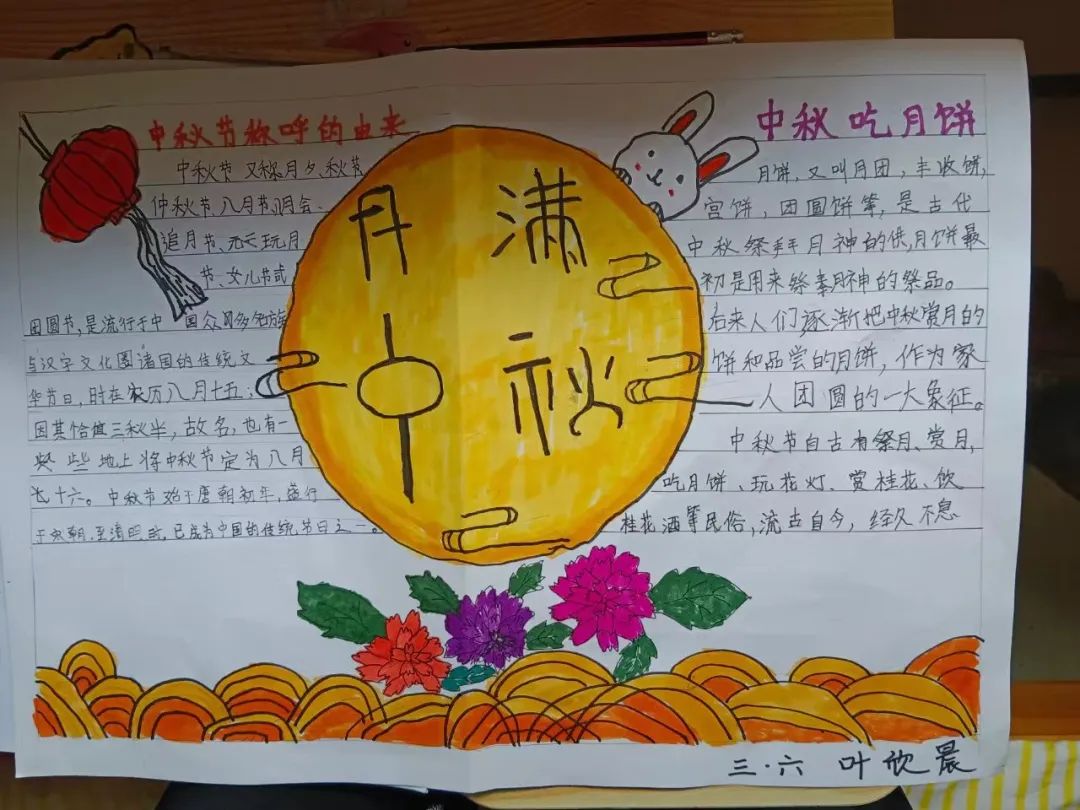 中秋节称呼的由来
中秋节又称月夕、秋节
仲秋节、八月节、月会、
追月节、玩月
节、女儿节或
团圆节,是流行于中国众多
与汉字文化圈诸国的传统文
华节日,时在农历八月十五;
因其恰值三秋半,故名,也有一
些地上将中秋节定为八月
十六。中秋节始于唐朝初年,盛行
于宋朝,至清明 已成为中国的传统节日之一。
月满
中秋
中秋吃月饼
月饼,又叫月团,丰收饼,
宫饼,团圆饼等,是古代
中秋祭拜月神的供,月饼最
初是用来祭月神的祭品。
后来人们逐渐把中秋赏月的
饼和品尝的月饼,作为家
人团圆的一大象征。
中秋节自古有祭月、赏月、
吃月饼、玩花灯、赏桂花、饮
桂花酒等民俗,流古自今,经久不息
三·六 叶欣晨